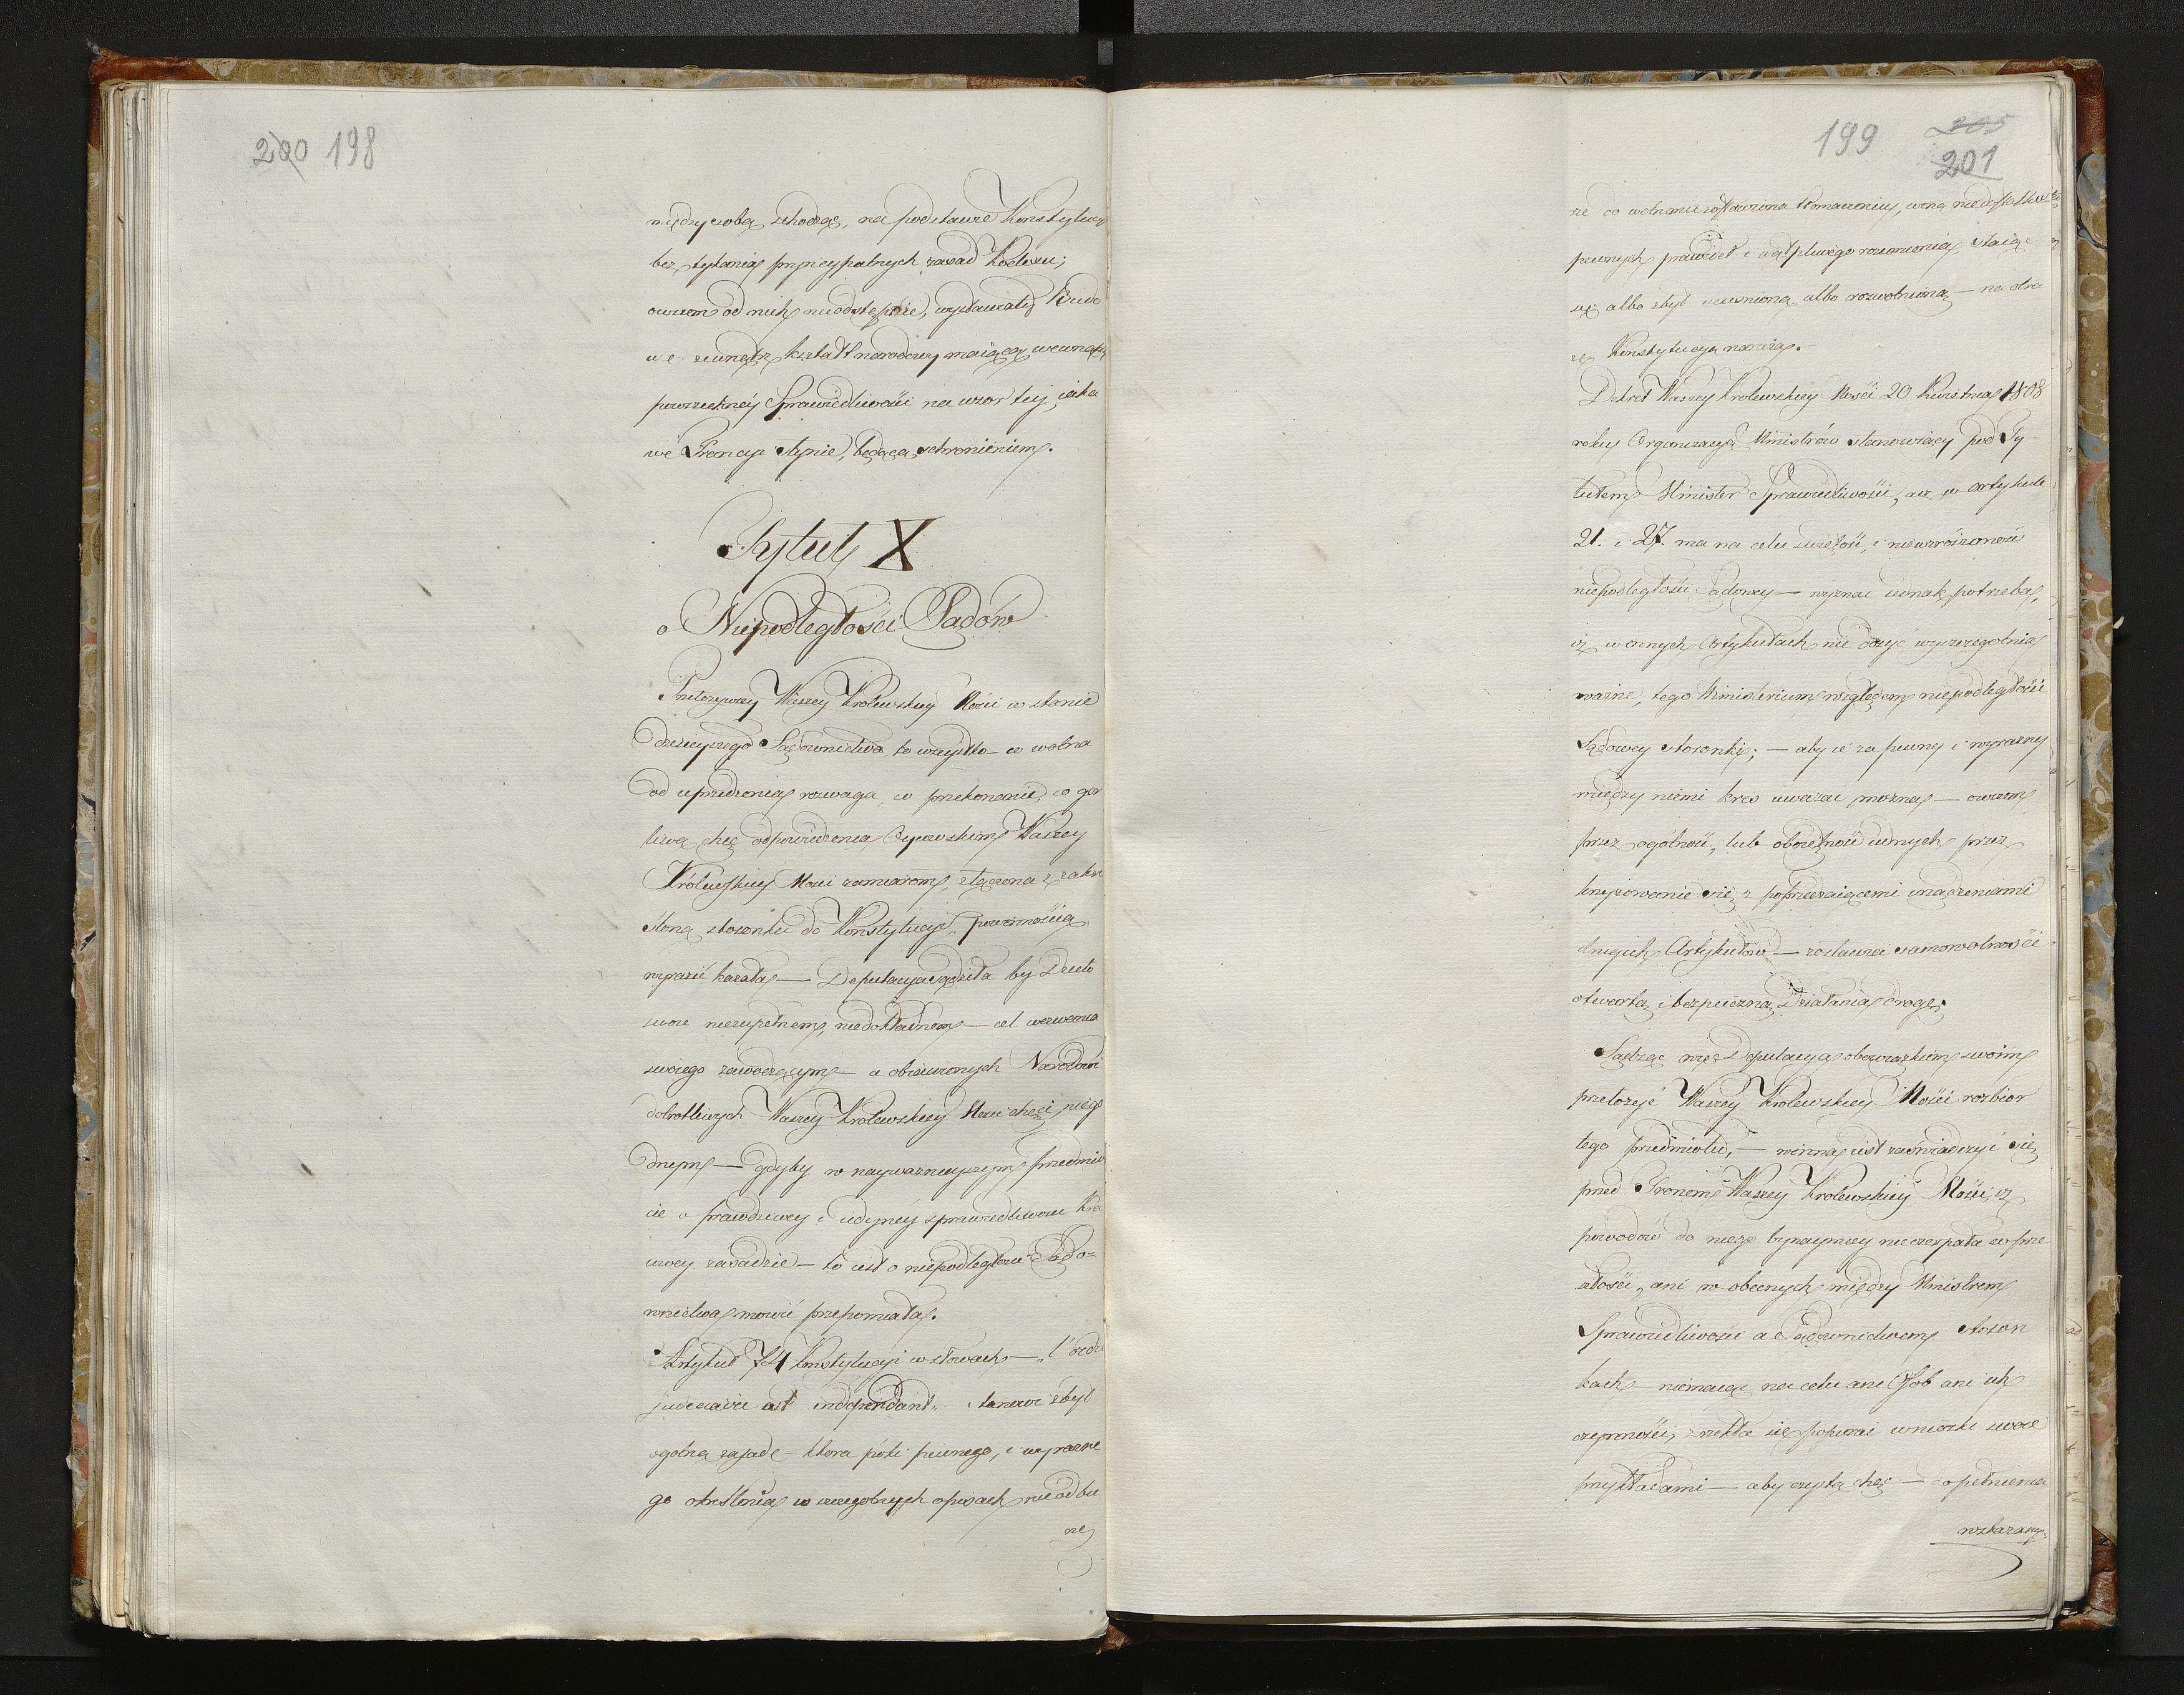 200 198
między sobą zchodzę, na podstawie Konstytucyi
bez tykania pryncypalnych zasad Kodexu;
owszem od nich nieodstępnie, wystawiały Budo
we zewnątrz kształt narodowy maiącą wewnątrz
powszechney Sprawiedliwości na wzor tey, iaka
we Francyi słynie, będącą schronieniem.
Tytuł X
o Niepodległości Sądów
Przełożywszy Waszey Krolewskiey Mości w stanie
dzisieyszego Sądownictwa to wszystko co wolna
od uprzedzenia rozwaga, co przekonanie, co gor
liwa chęć odpowiedzenia Oycowskim Waszey
Królewskiey Mości zamiarom, złączona z zakre
śloną stosunku do Konstytucyi powinnością
wyrazić kazała — Deputacya sądziła by Dzieło
swoie niezupełnem, niedokładnem — cel wezwania
swoiego zawodzącym — a obiawionych Narodowi
dobrotliwych Waszey Krolewskiey Mości chęci niego
dnym — gdyby w nayważnieyszym przedmio
cie o prawdziwey i iedyney sprawiedliwości Kra
iowey zasadzie — to iest o niepodległości Sądo=
wnictwa mowić przepomniała.
Artykuł 74 Konstytucyi w słowach — „l'ordre
judiciaire est independant„ stanowi zbyt
ogolną zasadę — ktora póki pewnego, i wyraźne
go określenia w szczegolnych opisach nie odbie
rze
199 205
201
rze co wolnemu zostawiona tłomaczeniu, winą niedostatku
pewnych prawideł i wątpliwego rozumienia staiąc
się albo zbyt scieśnioną albo rozwolnioną — na obra
zę Konstytucyą naraża.
Dekret Waszey Krolewskiey Mości 20 Kwietnia 1808
roku Organizacyą Ministrów stanowiący pod Ty-
tułem Minister Sprawiedliwości, acz w artykule
21. i 27. ma na celu świętość, i niewzruszoność
niepodległości Sądowey — wyznać iednak potrzeba,
iż w innych Artykułach nie dosyć wyszczegolnia
ważne, tego Ministerium względem niepodległości
Sądowey stosunki; — aby ie za pewny i wyrazny
między niemi kres uważać można — owszem
przez ogólność, lub oboiętność iednych przez
krzyżowanie się z poprzedzaiącemi urządzeniami
drugich Artykułów — zostawia samowolności
otwartą i bezpieczną Działania drogę.
Sądząc więc Deputacya obowiązkiem swoim
przełożyć Waszey Krolewskiey Mości rozbior
tego przedmiotu, — winna iest zaświadczyć się
przed Tronem Waszey Krolewskiey Mości, iż
powodów do niego bynaymniey nie czerpała w prze
szłości, ani w obecnych między Ministrem
Sprawiedliwości a Sądownictwem stosun
kach — niemaiąc na celu ani Osob ani ich
czynności, zrzekła się popierać wnioski swoie
przykładami — aby czystą chęć — dopełnienia
wskazany